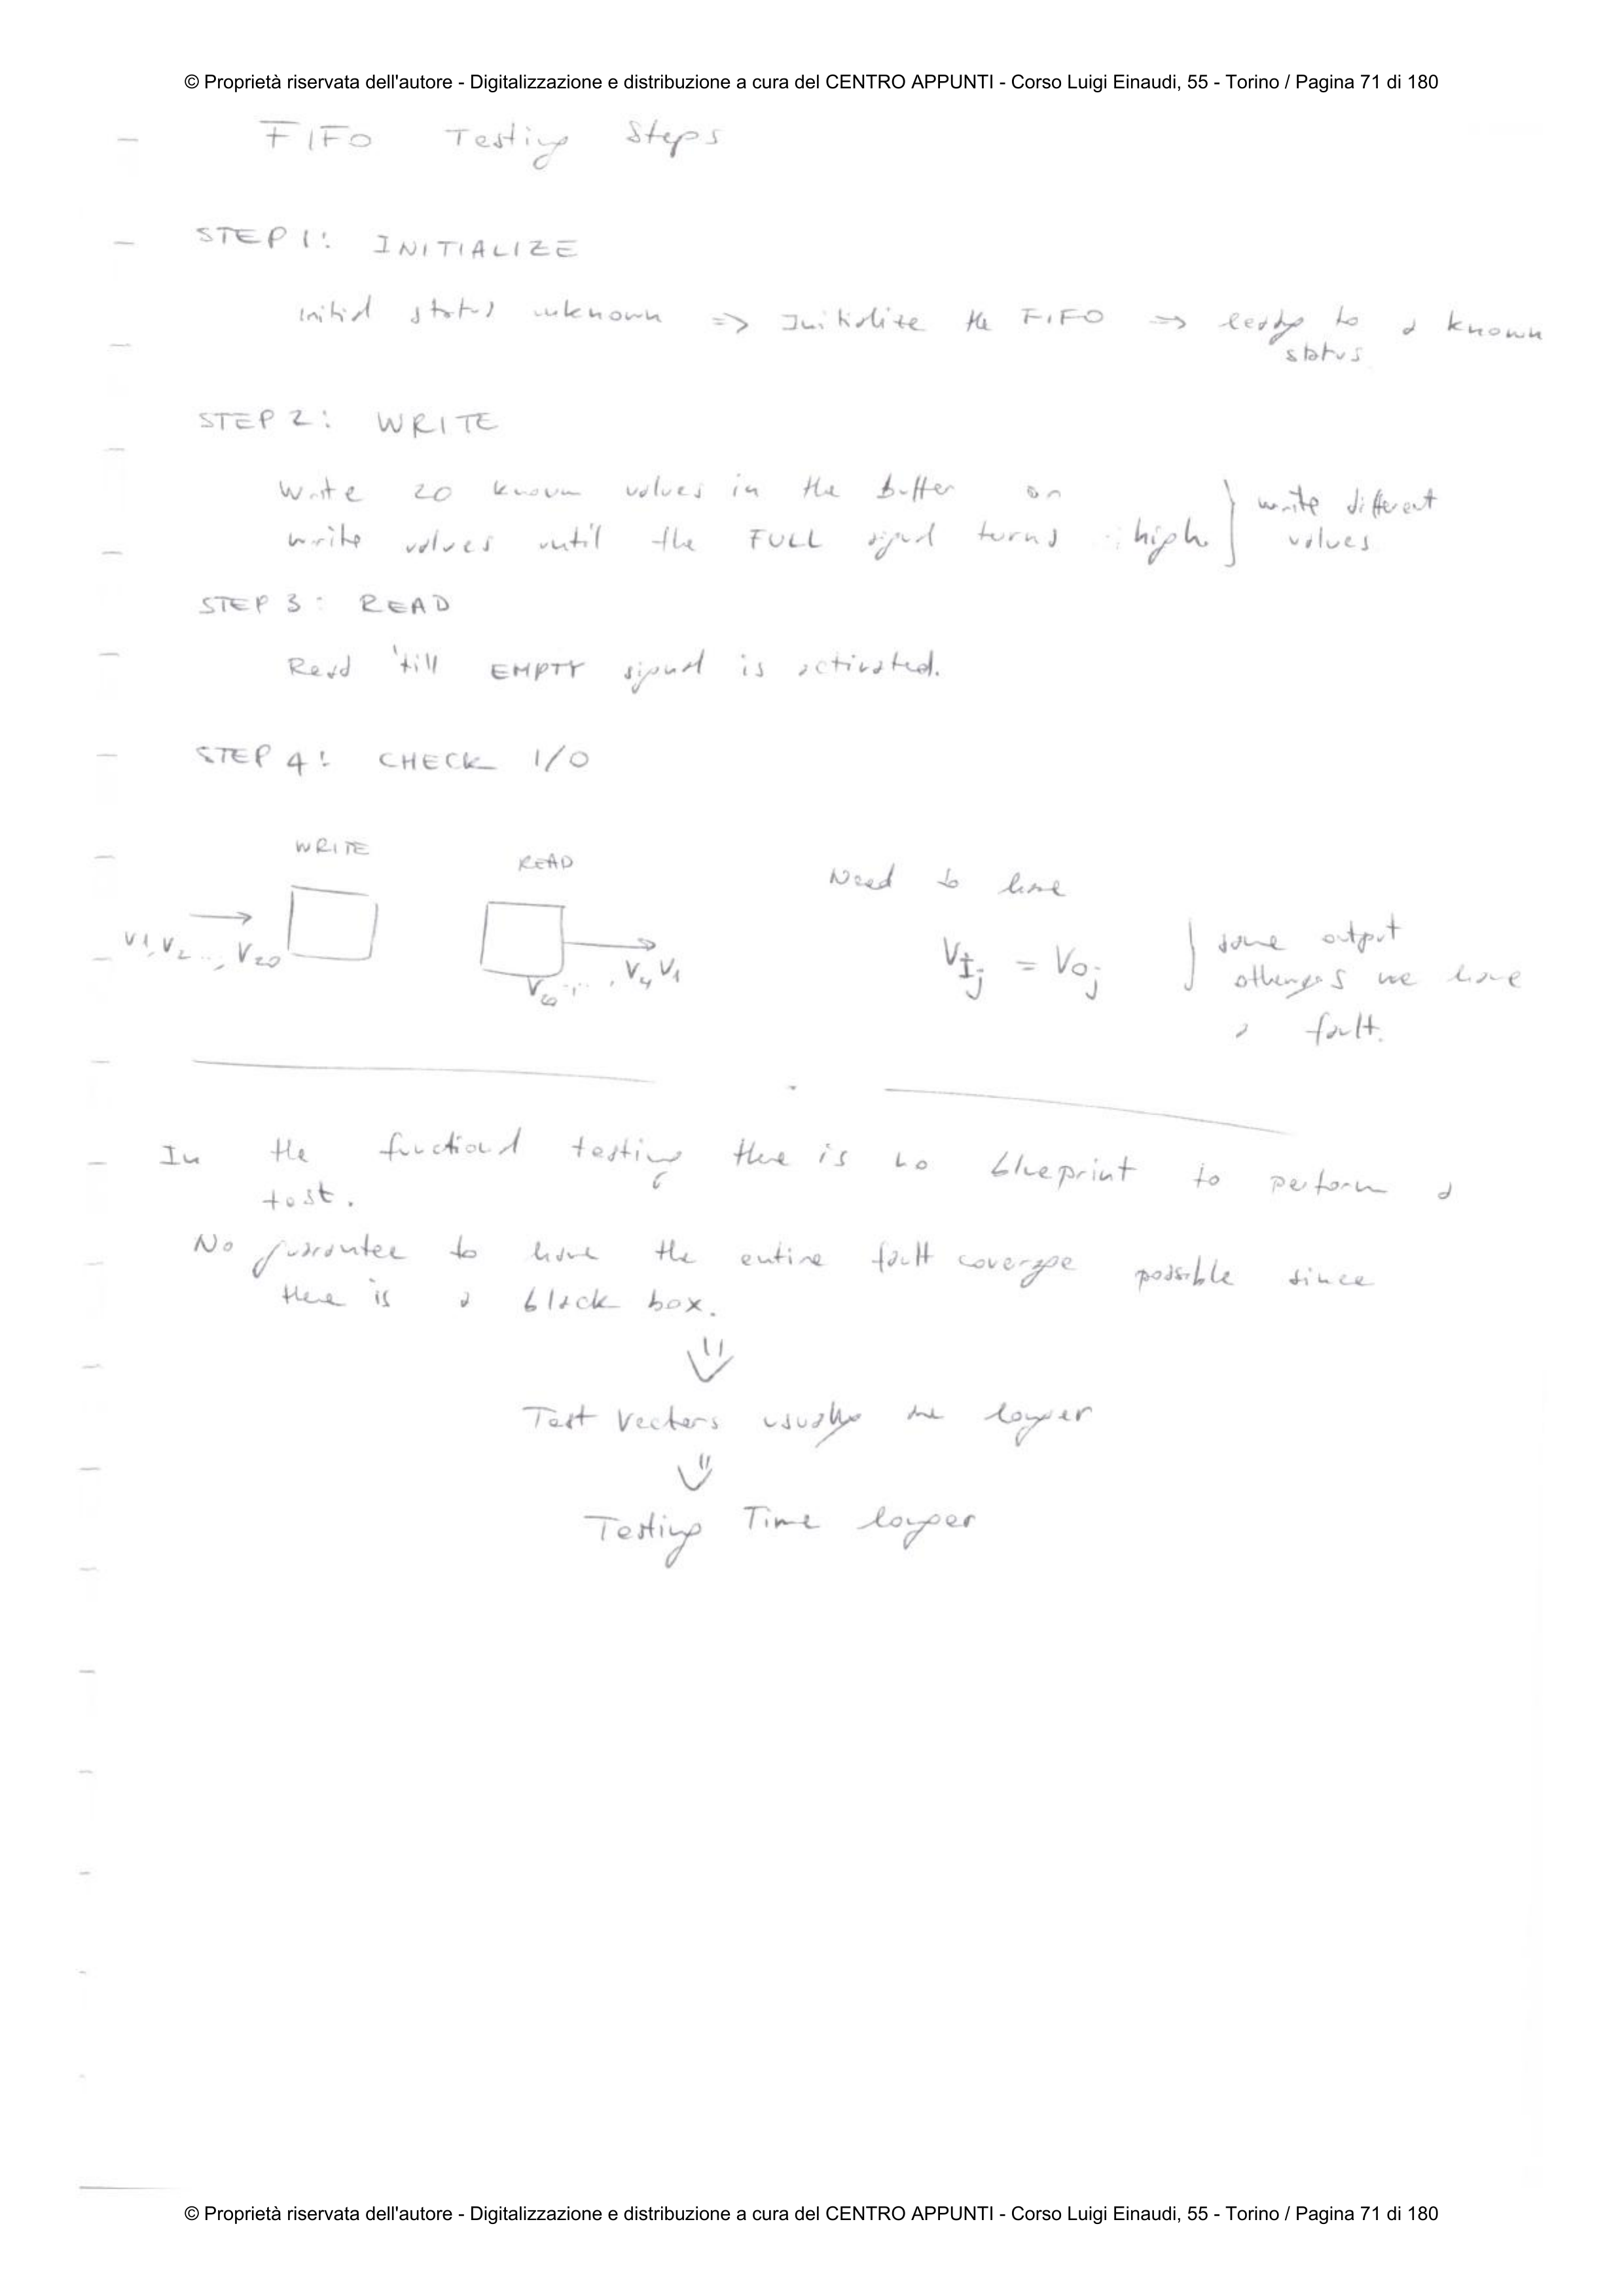 © Proprietà riservata dell'autore - Digitalizzazione e distribuzione a cura del CENTRO APPUNTI - Corso Luigi Einaudi, 55 - Torino / Pagina 71 di 180
FIFO Testing Steps
STEP 1: INITIALIZE
Initial status unknown => Initialize the FIFO => to a known
status
STEP 2: WRITE
Write 20 known values in the buffer or
write values until the FULL signal turns high } write different
values
STEP 3: READ
Read 'till EMPTY signal is activated.
STEP 4: CHECK I/O
WRITE
READ
V1, V2 ..., V20
..., V1
Need to have
VIj = VOj
} same output
we have
a fault.
In the functional testing there is no blueprint to perform a
test.
No guarantee to have the entire fault coverage possible since
there is a black box.
Test Vectors usually are longer
Testing Time longer
© Proprietà riservata dell'autore - Digitalizzazione e distribuzione a cura del CENTRO APPUNTI - Corso Luigi Einaudi, 55 - Torino / Pagina 71 di 180